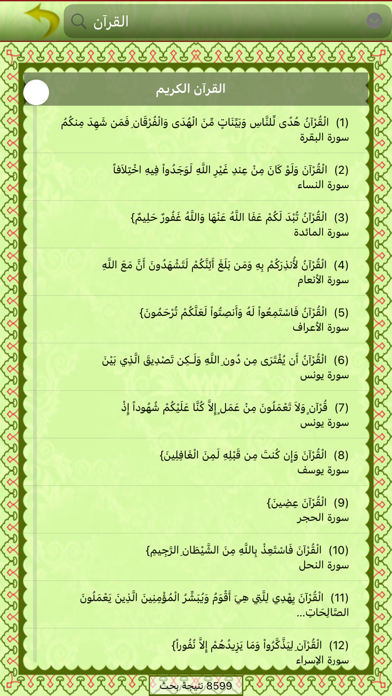 القرآن
القرآن الكريم
(1) الْقُرْآنُ هُدًى لِّلنَّاسِ وَبَيِّنَاتٍ مِّنَ الْهُدَى وَالْفُرْقَانِ فَمَن شَهِدَ مِنكُمُ
سورة البقرة
(2) الْقُرْآنَ وَلَوْ كَانَ مِنْ عِندِ غَيْرِ اللَّهِ لَوَجَدُواْ فِيهِ اخْتِلاَفاً
سورة النساء
(3) الْقُرْآنُ تُبْدَ لَكُمْ عَفَا اللَّهُ عَنْهَا وَاللَّهُ غَفُورٌ حَلِيمٌ}
سورة المائدة
(4) الْقُرْآنُ لأُنذِرَكُم بِهِ وَمَن بَلَغَ أَئِنَّكُمْ لَتَشْهَدُونَ أَنَّ مَعَ اللَّهِ
سورة الأنعام
(5) الْقُرْآنُ فَاسْتَمِعُواْ لَهُ وَأَنصِتُواْ لَعَلَّكُمْ تُرْحَمُونَ}
سورة الأعراف
(6) الْقُرْآنُ أَن يُفْتَرَى مِن دُونِ اللَّهِ وَلَـكِن تَصْدِيقَ الَّذِي بَيْنَ
سورة يونس
(7) قُرْآنٍ وَلاَ تَعْمَلُونَ مِنْ عَمَلٍ إِلاَّ كُنَّا عَلَيْكُمْ شُهُوداً إِذْ
سورة يونس
(8) الْقُرْآنَ وَإِن كُنتَ مِن قَبْلِهِ لَمِنَ الْغَافِلِينَ}
سورة يوسف
(9) الْقُرْآنَ عِضِينَ}
سورة الحجر
(10) الْقُرْآنَ فَاسْتَعِذْ بِاللَّهِ مِنَ الشَّيْطَانِ الرَّجِيمِ}
سورة النحل
(11) الْقُرْآنَ يِهْدِي لِلَّتِي هِيَ أَقْوَمُ وَيُبَشِّرُ الْمُؤْمِنِينَ الَّذِينَ يَعْمَلُونَ
الصَّالِحَاتِ...
(12) الْقُرْآنِ لِيَذَّكَّرُواْ وَمَا يَزِيدُهُمْ إِلاَّ نُفُوراً}
سورة الإسراء
8599 نتيجة بحث